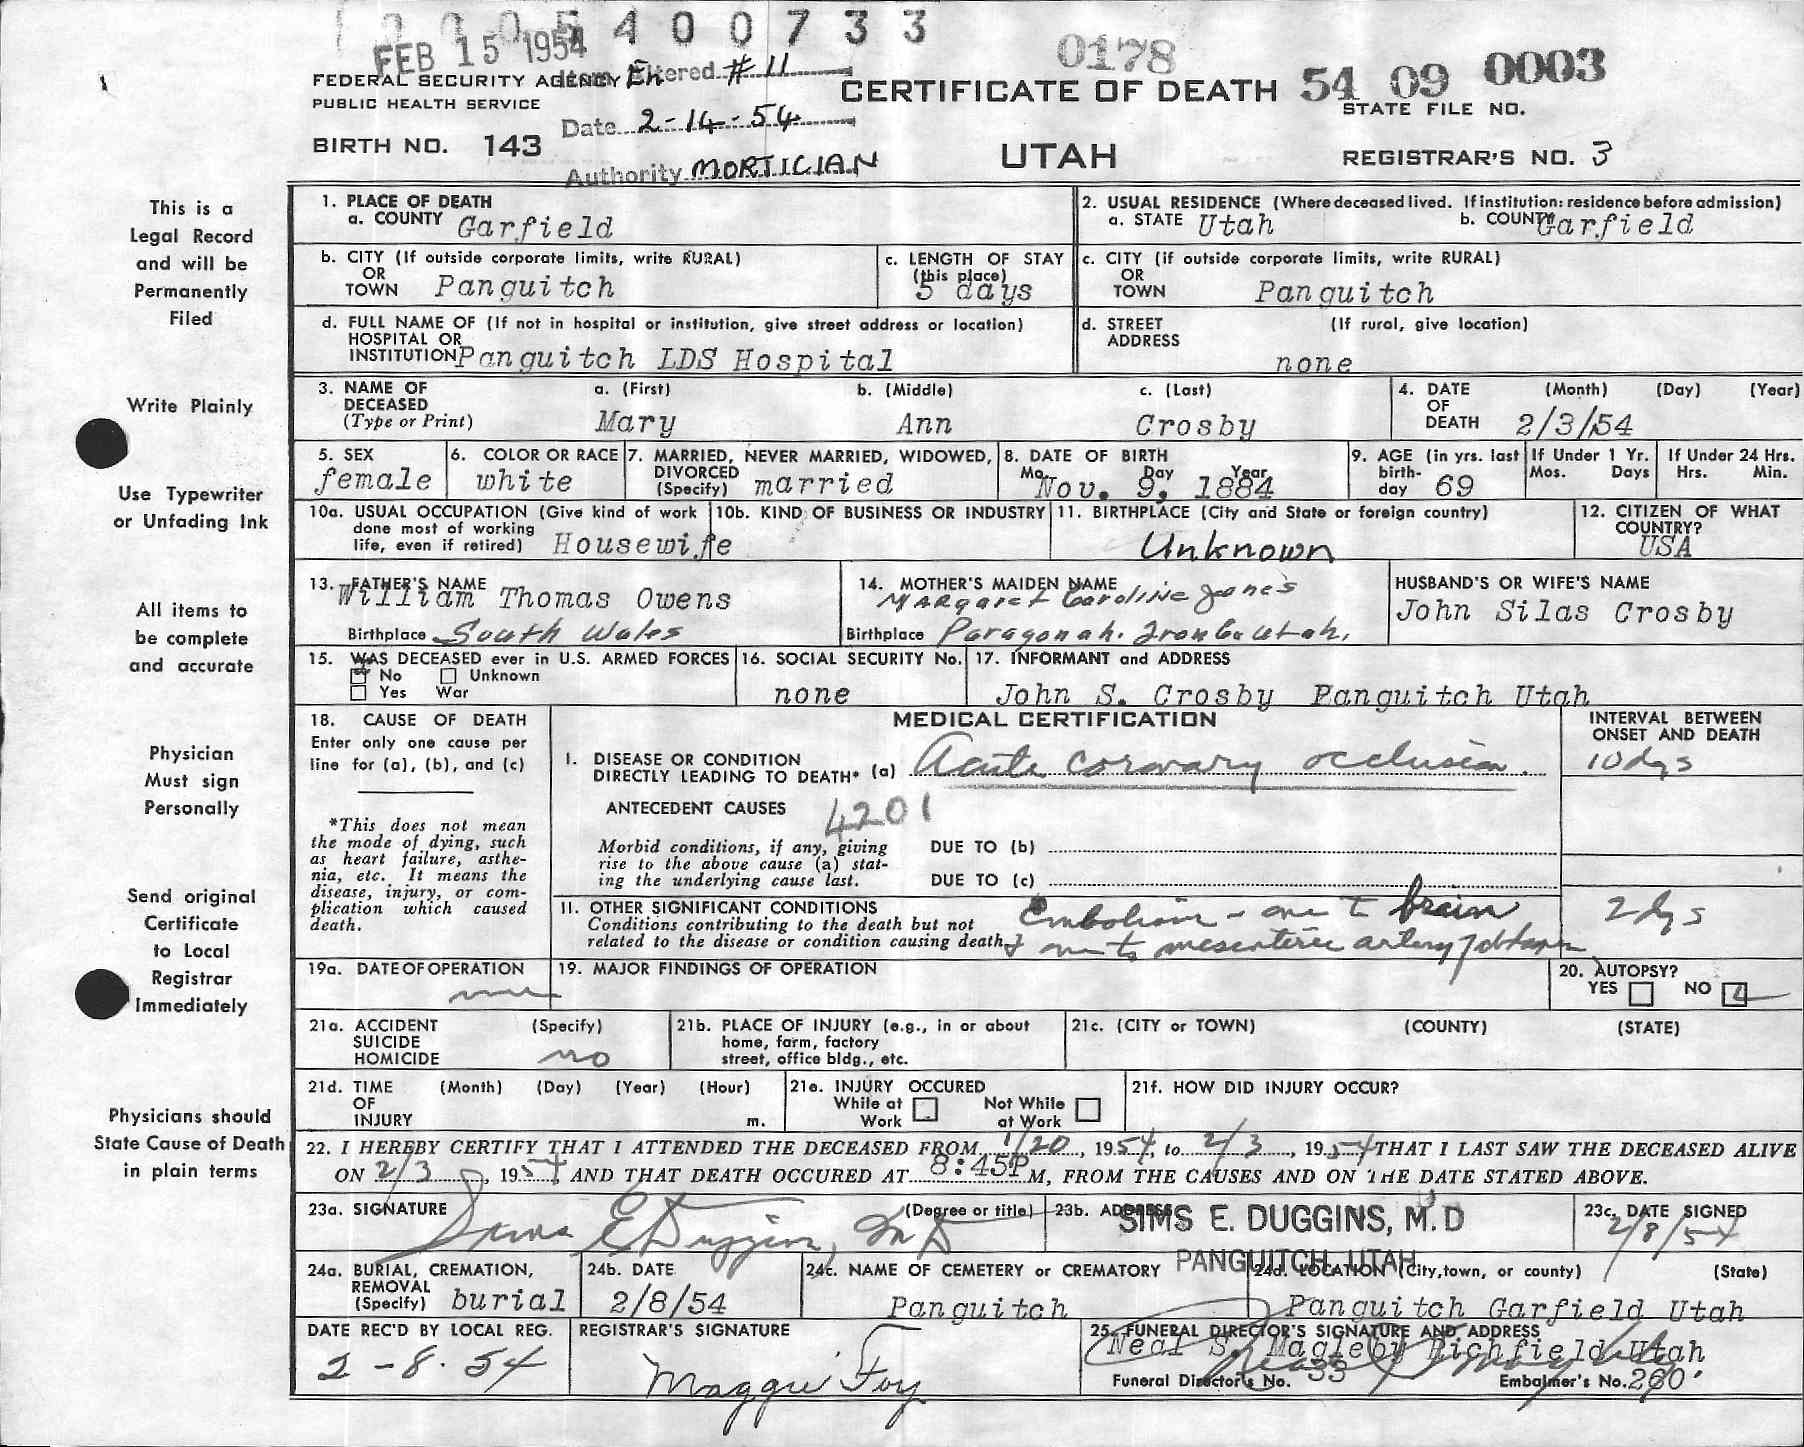 5400733
FEB 15 1954
0178
FEDERAL SECURITY AGENCY Item Entered #11
CERTIFICATE OF DEATH 54 09 0003
PUBLIC HEALTH SERVICE
STATE FILE NO.
Date 2-14-54
BIRTH NO. 143
UTAH
REGISTRAR'S NO. 3
Authority MORTICIAN
This is a
Legal Record
and will be
Permanently
Filed
Write Plainly
Use Typewriter
or Unfading Ink
All items to
be complete
and accurate
Physician
Must sign
Personally
Send original
Certificate
to Local
Registrar
Immediately
Physicians should
State Cause of Death
in plain terms
1. PLACE OF DEATH
a. COUNTY Garfield
2. USUAL RESIDENCE (Where deceased lived. If institution: residence before admission)
a. STATE Utah b. COUNTY Garfield
b. CITY (If outside corporate limits, write RURAL)
OR
TOWN Panguitch
c. LENGTH OF STAY
(this place)
5 days
c. CITY (if outside corporate limits, write RURAL)
OR
TOWN Panguitch
d. FULL NAME OF (If not in hospital or institution, give street address or location)
HOSPITAL OR
INSTITUTION Panguitch LDS Hospital
d. STREET (If rural, give location)
ADDRESS
none
3. NAME OF a. (First) b. (Middle) c. (Last)
DECEASED
(Type or Print) Mary Ann Crosby
4. DATE (Month) (Day) (Year)
OF
DEATH 2/3/54
5. SEX
female
6. COLOR OR RACE
white
7. MARRIED, NEVER MARRIED, WIDOWED,
DIVORCED
(Specify) married
8. DATE OF BIRTH
Mo. Day Year
Nov. 9, 1884
9. AGE (in yrs. last
birth-
day 69
If Under 1 Yr.
Mos. Days
If Under 24 Hrs.
Hrs. Min.
10a. USUAL OCCUPATION (Give kind of work
done most of working
life, even if retired) Housewife
10b. KIND OF BUSINESS OR INDUSTRY
11. BIRTHPLACE (City and State or foreign country)
Unknown
12. CITIZEN OF WHAT
COUNTRY?
USA
13. FATHER'S NAME
William Thomas Owens
Birthplace South Wales
14. MOTHER'S MAIDEN NAME
Margaret Caroline Jones
Birthplace Paragonah. Iron Co Utah.
HUSBAND'S OR WIFE'S NAME
John Silas Crosby
15. WAS DECEASED ever in U.S. ARMED FORCES
No Unknown
Yes War
16. SOCIAL SECURITY No.
none
17. INFORMANT and ADDRESS
John S. Crosby Panguitch Utah
18. CAUSE OF DEATH
Enter only one cause per
line for (a), (b), and (c)
*This does not mean
the mode of dying, such
as heart failure, asthe-
nia, etc. It means the
disease, injury, or com-
plication which caused
death.
MEDICAL CERTIFICATION
INTERVAL BETWEEN
ONSET AND DEATH
I. DISEASE OR CONDITION
DIRECTLY LEADING TO DEATH* (a) Acute coronary occlusion.
10 dys
ANTECEDENT CAUSES 4201
Morbid conditions, if any, giving
rise to the above cause (a) stat-
ing the underlying cause last.
DUE TO (b)
DUE TO (c)
11. OTHER SIGNIFICANT CONDITIONS
Conditions contributing to the death but not
related to the disease or condition causing death.
Embolism - one to brain
mesenteric artery
2 dys
19a. DATE OF OPERATION
19. MAJOR FINDINGS OF OPERATION
20. AUTOPSY?
YES NO
21a. ACCIDENT (Specify)
SUICIDE
HOMICIDE no
21b. PLACE OF INJURY (e.g., in or about
home, farm, factory
street, office bldg., etc.
21c. (CITY or TOWN) (COUNTY) (STATE)
21d. TIME (Month) (Day) (Year) (Hour)
OF
INJURY m.
21e. INJURY OCCURED
While at Not While
Work at Work
21f. HOW DID INJURY OCCUR?
22. I HEREBY CERTIFY THAT I ATTENDED THE DECEASED FROM 1/20, 1954, to 2/3, 1954 THAT I LAST SAW THE DECEASED ALIVE
ON 2/3, 1954 AND THAT DEATH OCCURED AT 8:45P M, FROM THE CAUSES AND ON THE DATE STATED ABOVE.
23a. SIGNATURE (Degree or title)
Sims E Duggins, MD
23b. ADDRESS
SIMS E. DUGGINS, M.D
PANGUITCH, UTAH
23c. DATE SIGNED
2/8/54
24a. BURIAL, CREMATION,
REMOVAL
(Specify) burial
24b. DATE
2/8/54
24c. NAME OF CEMETERY or CREMATORY
Panguitch
24d. LOCATION (City, town, or county) (State)
Panguitch Garfield Utah
DATE REC'D BY LOCAL REG.
2-8-54
REGISTRAR'S SIGNATURE
Maggie Foy
25. FUNERAL DIRECTOR'S SIGNATURE AND ADDRESS
Neal S. Magleby Richfield Utah
Funeral Director's No. 35 Embalmer's No. 260